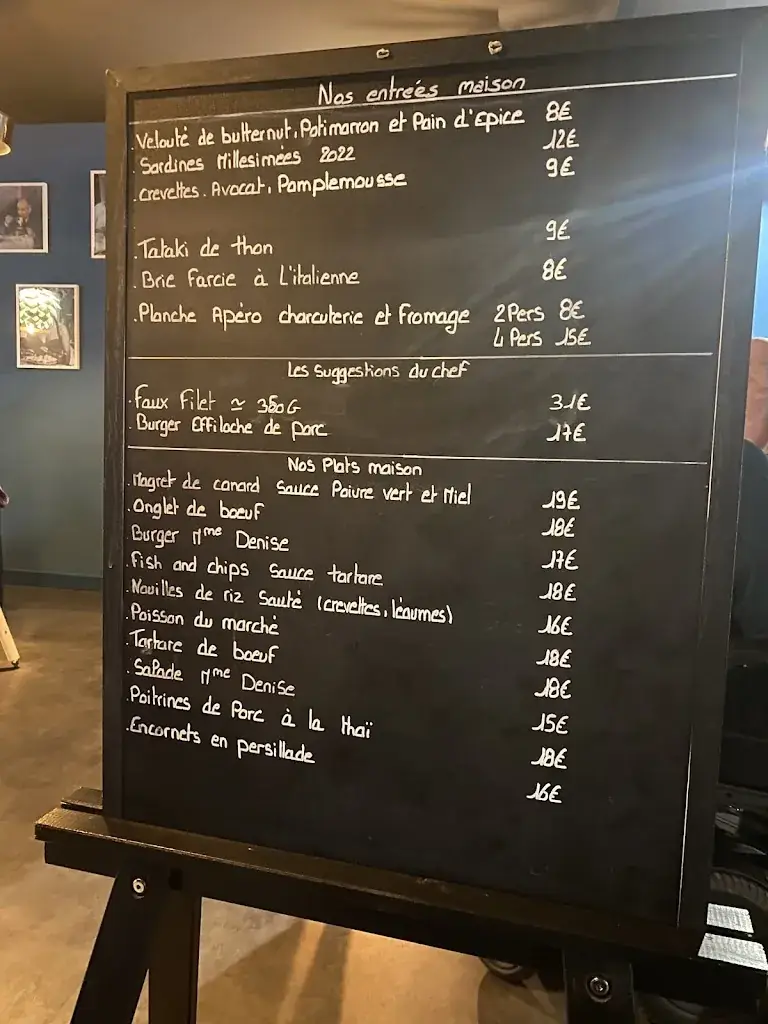 Nos entreés maison
.Velouté de butternut, Potimarron et Pain d'Epice 8€
.Sardines Millesimées 2022 12€
.Crevettes. Avocat, Pamplemousse 9€
.Tataki de thon 9€
.Brie Farcie à L'italienne 8€
.Planche Apéro charcuterie et Fromage 2Pers 8€
4 Pers 15€
Les Suggestions du chef
.Faux Filet ≃ 350G 31€
.Burger Effiloche de porc 17€
Nos Plats maison
.Magret de canard Sauce Poivre vert et Miel 19€
.Onglet de boeuf 18€
.Burger Mme Denise 17€
.Fish and chips Sauce tartare 18€
.Nouilles de riz Sauté (crevettes, légumes) 16€
.Poisson du marché 18€
.Tartare de boeuf 18€
.Salade Mme Denise 15€
.Poitrines de Porc à la thaï 18€
.Encornets en persillade 16€